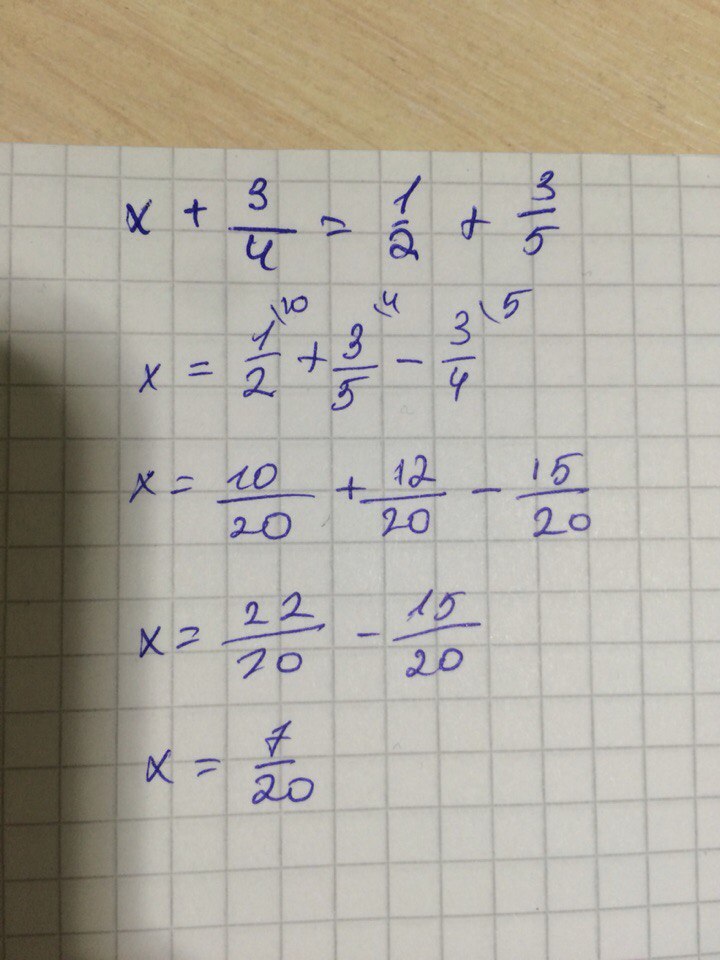 x + 3/4 = 1/2 + 3/5
x = 1/2\10 + 3/5\4 - 3/4\5
x = 10/20 + 12/20 - 15/20
x = 22/20 - 15/20
x = 7/20